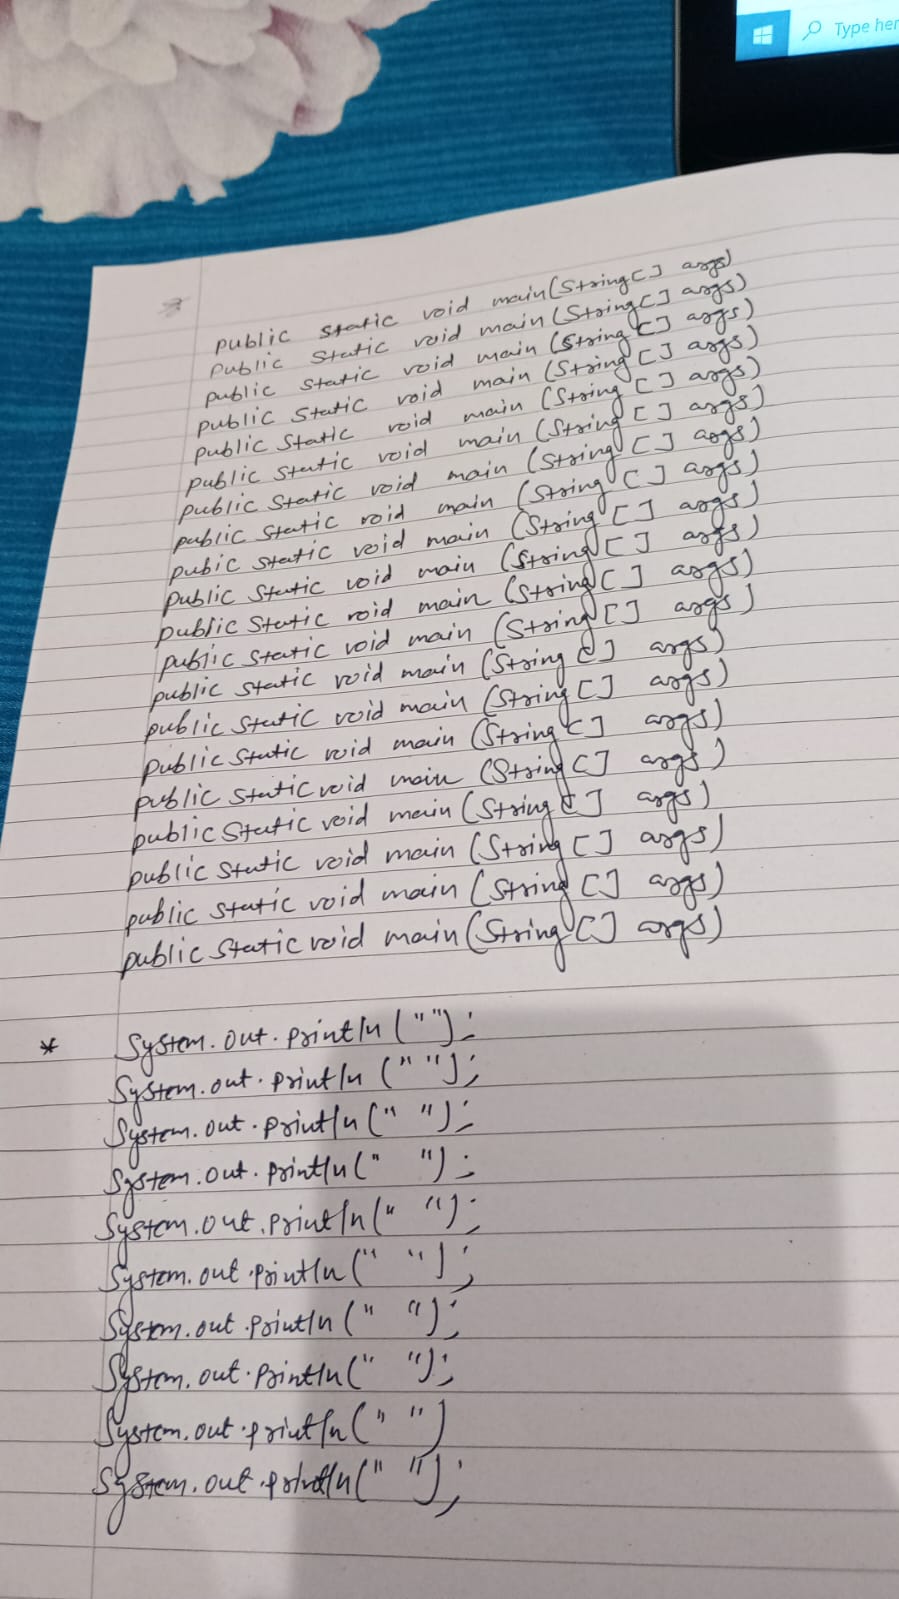 Type her
public static void main(String[] args)
public static void main (String[] args)
public static void main (String[] args)
public static void main (String[] args)
public static void main (String[] args)
public static void main (String[] args)
public static void main (String[] args)
public static void main (String[] args)
pubic static void main (String[] args)
public static void main (String[] args)
public static void main (String[] args)
public static void main (String[] args)
public static void main (String[] args)
public static void main (String[] args)
public static void main (String[] args)
public static void main (String[] args)
public static void main (String[] args)
public static void main (String[] args)
public static void main (String[] args)
public static void main (String[] args)
* System.out.println ("");
System.out.println (" ");
System.out.println (" ");
System.out.println (" ");
System.out.println (" ");
System.out.println (" ");
System.out.println (" ");
System.out.println (" ");
System.out.println (" ")
System.out.println (" ");